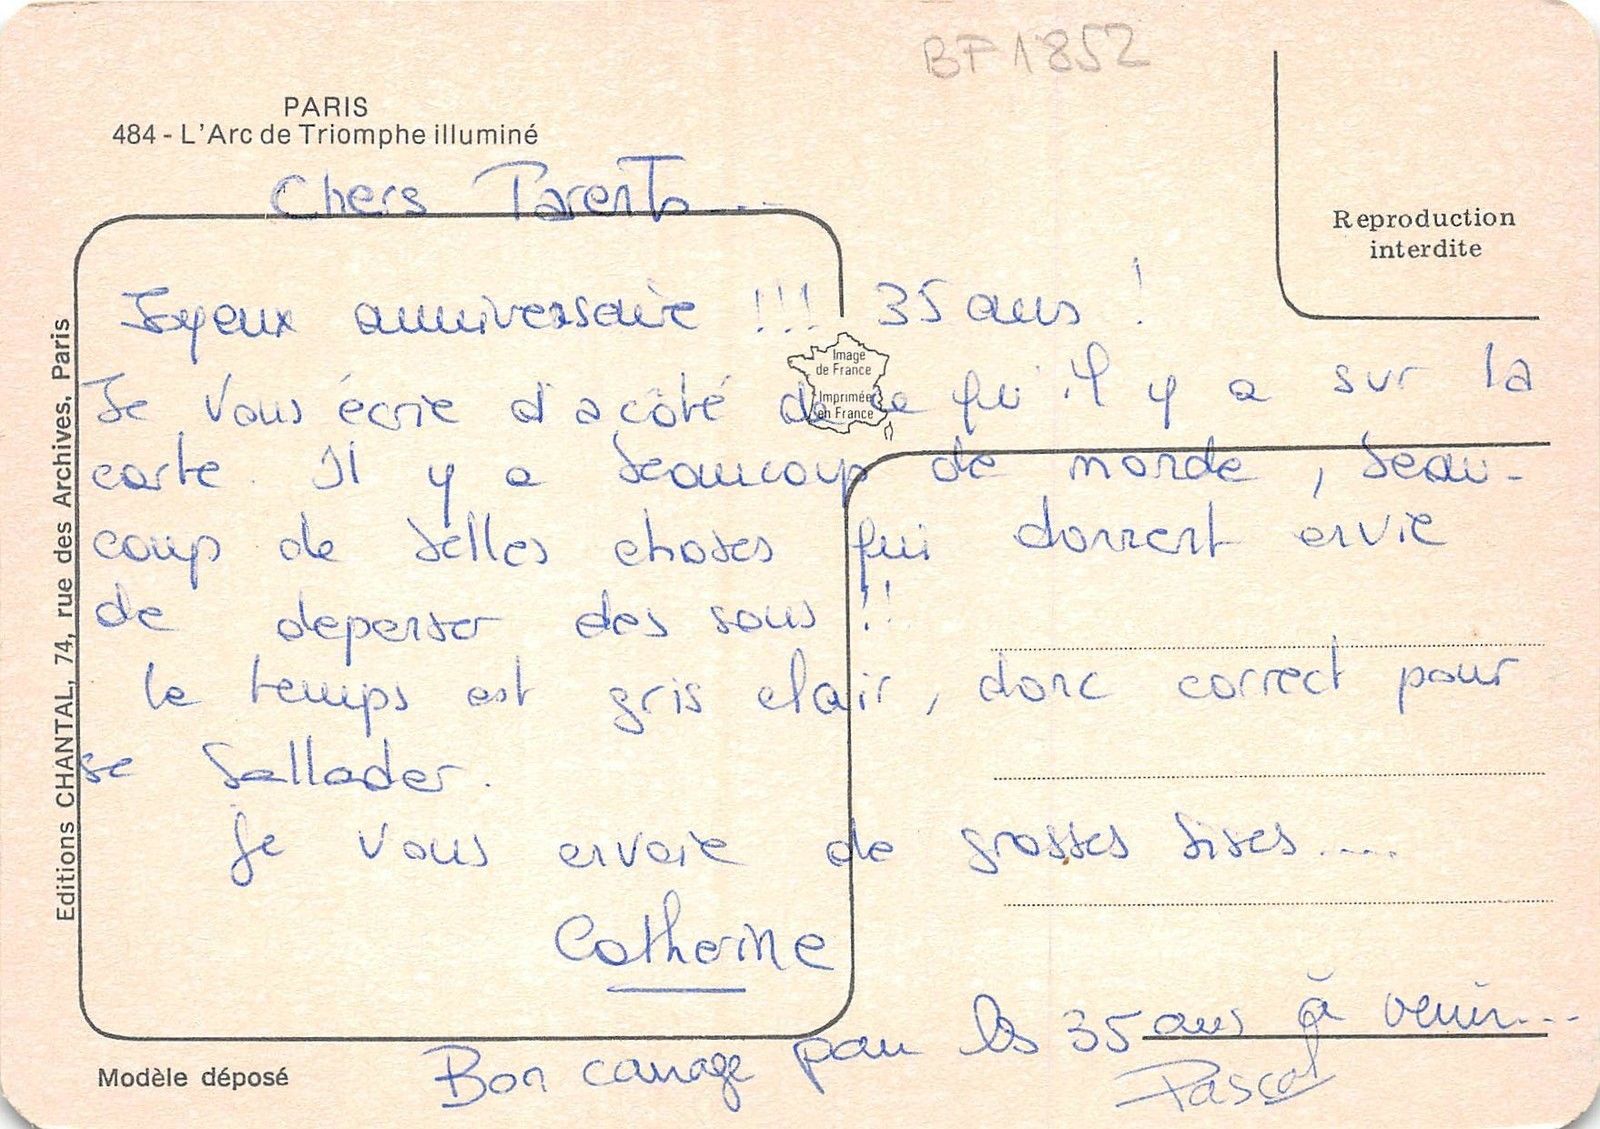 BF1852
PARIS
484 - L'Arc de Triomphe illuminé
Reproduction
interdite
Editions CHANTAL, 74, rue des Archives, Paris
Image
de France
Imprimée
en France
Chers Parents...
Joyeux anniversaire !!! 35 ans !
Je vous écrie d'a côté de ce qu'il y a sur la
carte. Il y a beaucoup de monde, beau-
coup de belles choses qui donnent envie
de depenser des sous !!
le temps est gris clair, donc correct pour
se ballader.
Je vous envoie de grosses bises.....
Catherine
Bon courage pour les 35 ans à venir...
Pascal
Modèle déposé